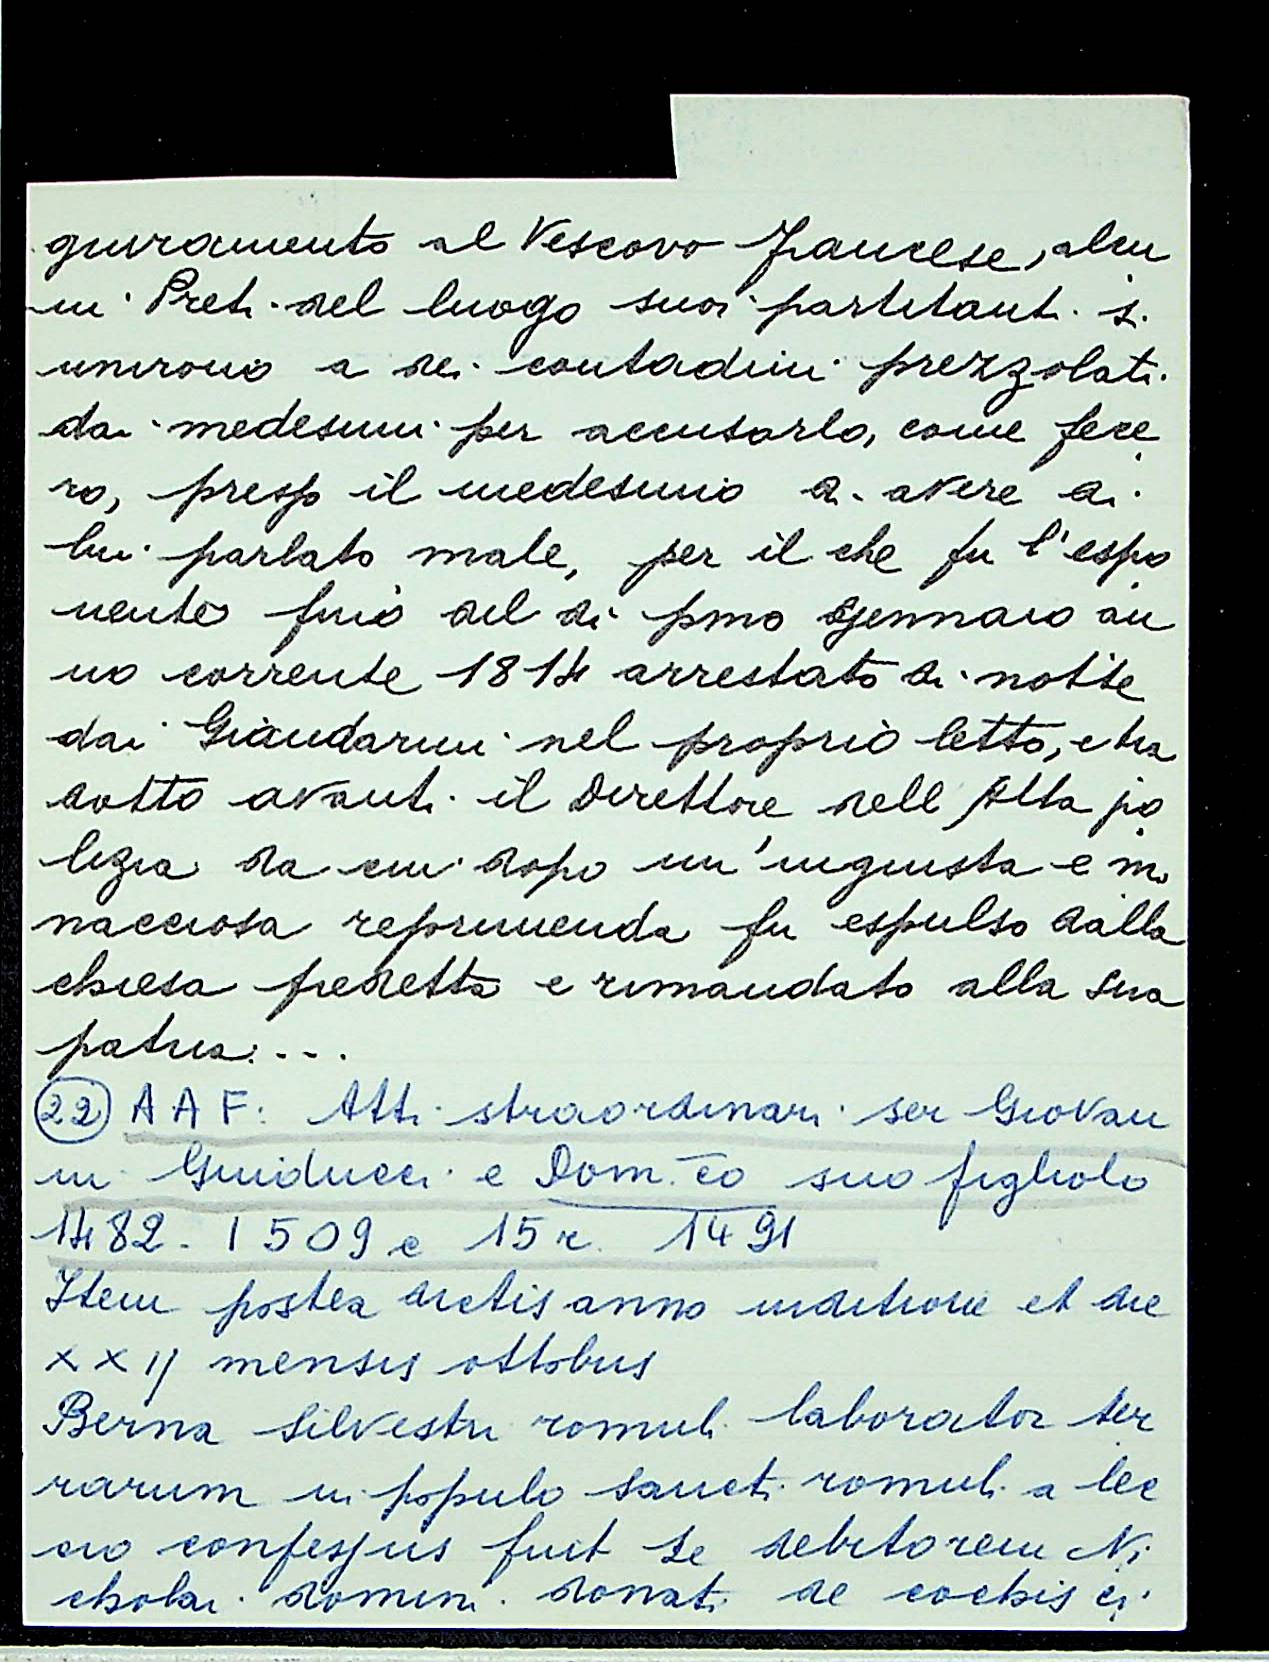 giuramento al Vescovo Francese, alcu
ni Preti del luogo suoi partitanti si
unirono a dei contadini prezzolati
dai medesimi per accusarlo, come fece
ro, presso il medesimo di avere di
lui parlato male, per il che fu l'espo
nente fino del di pmo Gennaio an
no corrente 1814 arrestato di notte
dai Giandarmi nel proprio letto, e tra
dotto avanti il Direttore dell Alta po
lizia da cui dopo un'ingiusta e mi
nacciosa reprimenda fu espulso dalla
chiesa predetta e rimandato alla sua
patria...
(22) AAF: Atti straordinari ser Giovan
ni Guiducci e Dom.co suo figliolo
1482-1509 e 15r. 1491
Item postea dictis anno inditione et die
xxij mensis ottobris
Berna silvestri romuli laborator ter
rarum in populo sancti romuli a lec
cio confessus fuit se debitorem Ni
cholai domini donati de cochis ci